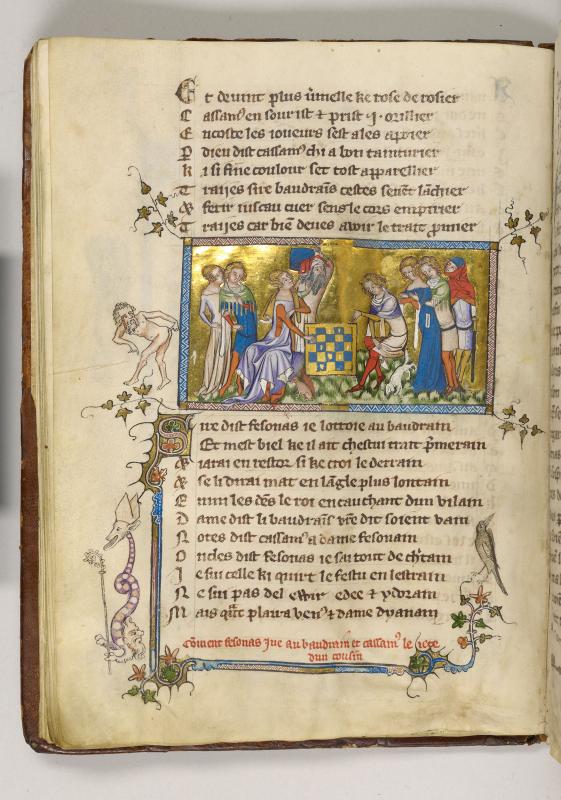 Et devint plus v̾melle ke rose de rosier
Cassam᷒ en sourist ⁊ prist ·i· orillier
Encoste les ioueurs sest ales apoier
P dieu dist cassam᷒ chi a bon tainturier
Ki si fine coulour set tost apparellier
Traijes sire baudrai̅s cestes
ferir cuer sens le cors empirier
Traijes car bie̅ deues avoir le trait p̾mier
Sire dist fesonas ie lottoie au baudrain
Et mest biel ke il ait chestui trait p̾merain
iarai en restor si ke croi le derrain
se li dirai mat en la̅gle plus lontain
E le roi en cauchant dun vilain
Dame dist li baudrai̅s vr̅e dit soient vain
Notes dist cassam᷒ a dame fesonain
Ondes dist fesonas ie sai tout de
Je sui celle ki quirt le festu en lestrain
Ne sui pas del edee ⁊ ydorain
Mais plaira ven᷒ ⁊ dame dyanain
Co̅ment fesonas iue au baudrain et cassam᷒ le iete
dun cousin